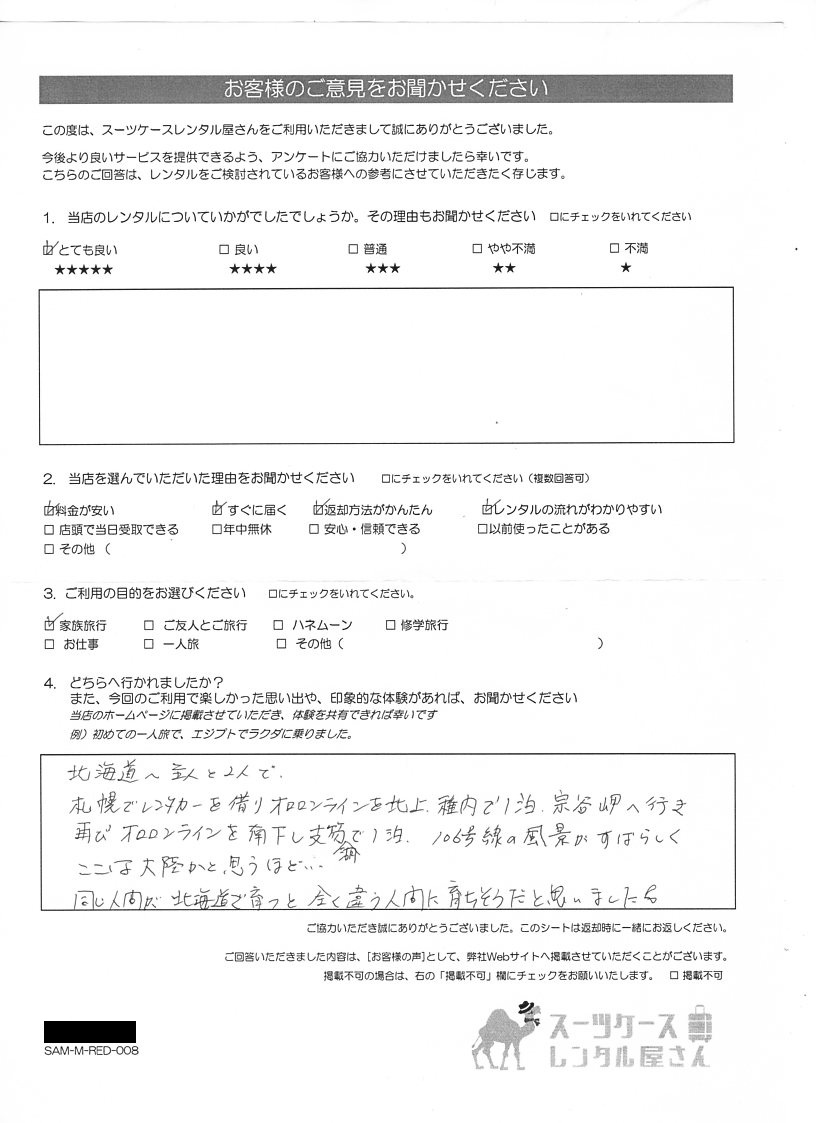 お客様のご意見をお聞かせください
この度は、スーツケースレンタル屋さんをご利用いただきまして誠にありがとうございました。
今後より良いサービスを提供できるよう、アンケートにご協力いただけましたら幸いです。
こちらのご回答は、レンタルをご検討されているお客様への参考にさせていただきたく存じます。
1. 当店のレンタルについていかがでしたでしょうか。その理由もお聞かせください □にチェックをいれてください
☑とても良い □ 良い □ 普通 □ やや不満 □ 不満
★★★★★ ★★★★ ★★★ ★★ ★
2. 当店を選んでいただいた理由をお聞かせください □にチェックをいれてください（複数回答可）
☑料金が安い ☑すぐに届く ☑返却方法がかんたん ☑レンタルの流れがわかりやすい
□ 店頭で当日受取できる □年中無休 □ 安心・信頼できる □以前使ったことがある
□ その他（ ）
3. ご利用の目的をお選びください □にチェックをいれてください。
☑家族旅行 □ ご友人とご旅行 □ ハネムーン □ 修学旅行
□ お仕事 □ 一人旅 □ その他（ ）
4. どちらへ行かれましたか？
また、今回のご利用で楽しかった思い出や、印象的な体験があれば、お聞かせください
当店のホームページに掲載させていただき、体験を共有できれば幸いです
例）初めての一人旅で、エジプトでラクダに乗りました。
北海道へ主人と2人で.
札幌でレンタカーを借りオロロンラインを北上.稚内で1泊.宗谷岬へ行き
再びオロロンラインを南下し支笏で1泊. 106号線の風景がすばらしく
ここは大陸かと思うほど…
同じ人間が北海道で育つと全く違う人間に育ちそうだと思いました
ご協力いただき誠にありがとうございました。このシートは返却時に一緒にお返しください。
ご回答いただきました内容は、[お客様の声]として、弊社Webサイトへ掲載させていただくことがございます。
掲載不可の場合は、右の「掲載不可」欄にチェックをお願いいたします。 □ 掲載不可
SAM-M-RED-008
スーツケース
レンタル屋さん